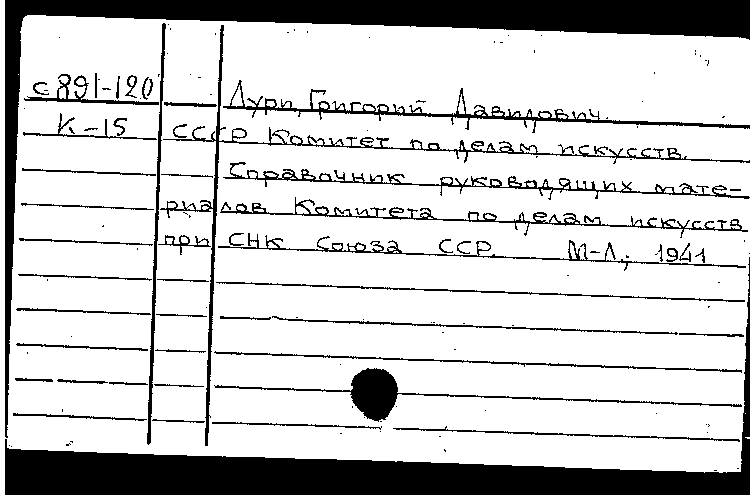 с 891-120
Лури, Григорий Давидович.
К-15 СССР Комитет по делам искусств.
Справочник руководящих мате-
риалов Комитета по делам искусств
при СНК Союза ССР. М-Л; 1941